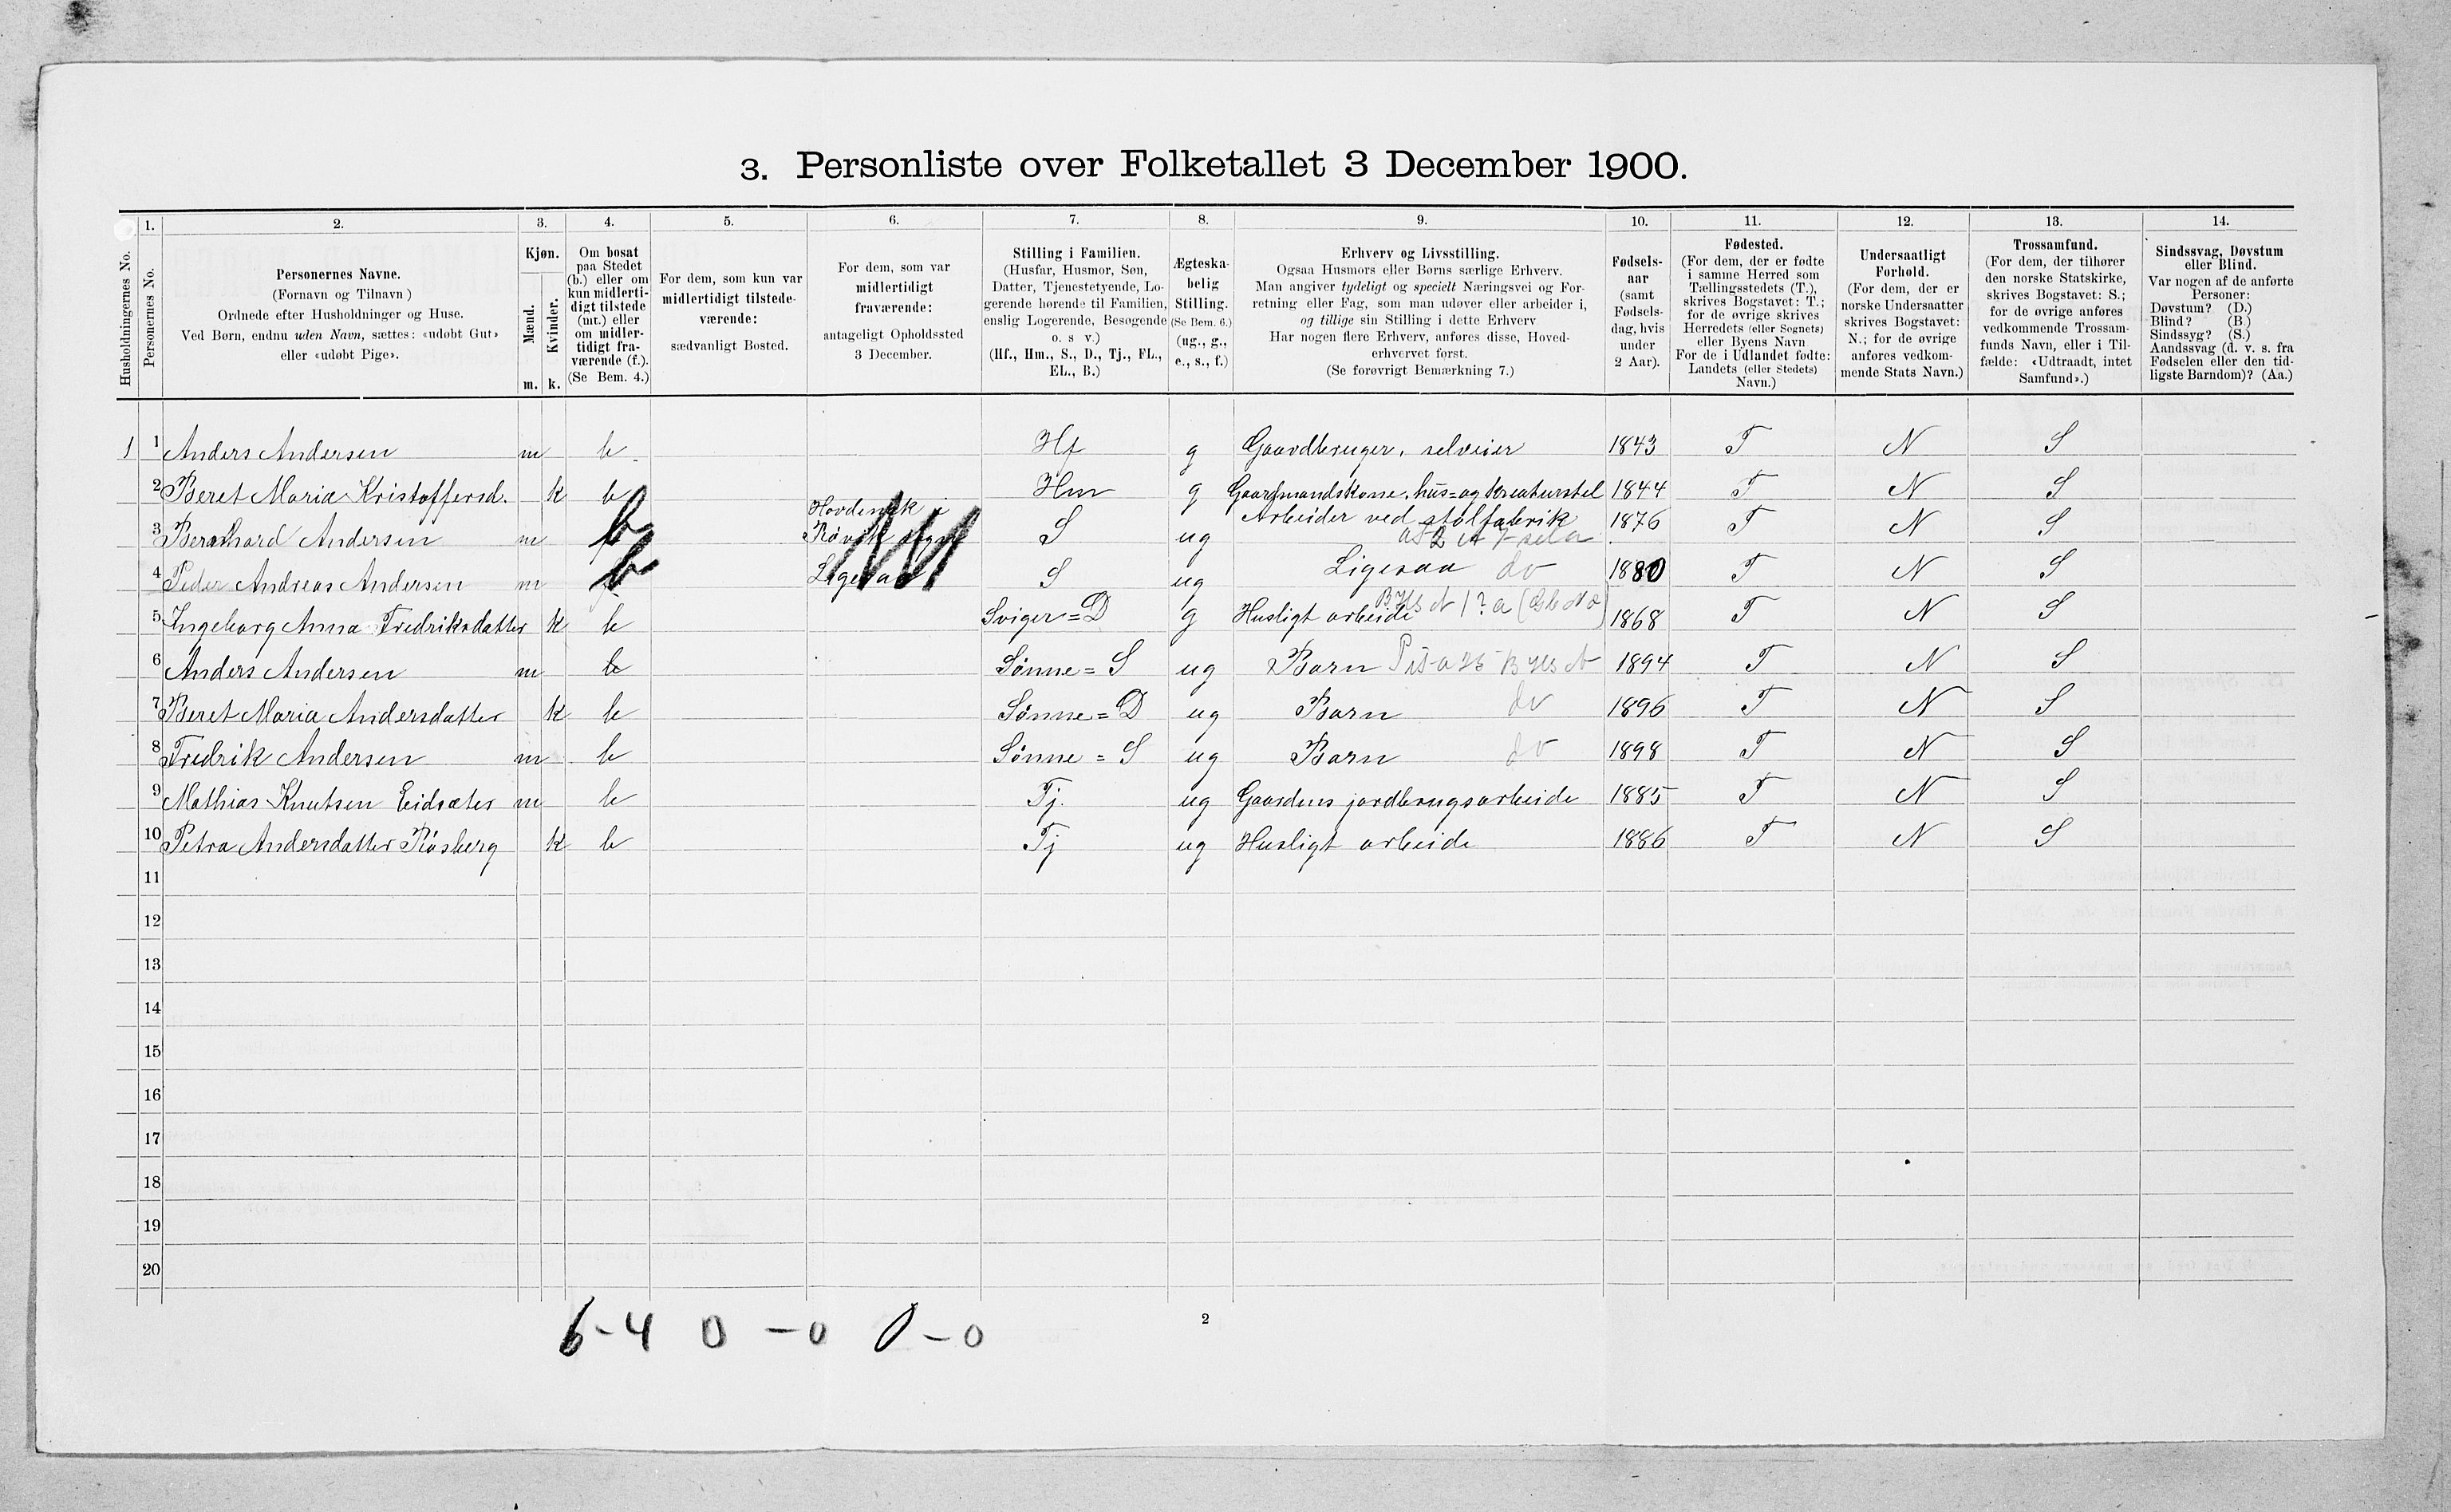 3. Personliste over Folketallet 3 December 1900.
1. 2. 3. 4. 5. 6. 7. 8. 9. 10. 11. 12. 13. 14.
Husholdningernes No.
Personernes No.
Personernes Navne.
(Fornavn og Tilnavn)
Ordnede efter Husholdninger og Huse.
Ved Børn, endnu uden Navn, sættes: «udøbt Gut»
eller «udøbt Pige».
Kjøn.
Mænd.
Kvinder.
m. k.
Om bosat
paa Stedet
(b.) eller om
kun midlerti-
digt tilstede
(mt.) eller
om midler-
tidigt fra-
værende (f.).
(Se Bem. 4.)
For dem, som kun var
midlertidigt tilstede-
værende:
sædvanligt Bosted.
For dem, som var
midlertidigt
fraværende:
antageligt Opholdssted
3 December.
Stilling i Familien.
(Husfar, Husmor, Søn,
Datter, Tjenestetyende, Lo-
gerende hørende til Familien,
enslig Logerende, Besøgende
o. s v.)
(Hf., Hm., S., D., Tj., FL.,
EL., B.)
Ægteska-
belig
Stilling.
(Se Bem. 6.)
(ug., g.,
e., s., f.)
Erhverv og Livsstilling.
Ogsaa Husmors eller Børns særlige Erhverv.
Man angiver tydeligt og specielt Næringsvei og For-
retning eller Fag, som man udøver eller arbeider i,
og tillige sin Stilling i dette Erhverv
Har nogen flere Erhverv, anføres disse, Hoved-
erhvervet først.
(Se forøvrigt Bemærkning 7.)
Fødsels-
aar
(samt
Fødsels-
dag, hvis
under
2 Aar).
Fødested.
(For dem, der er fødte
i samme Herred som
Tællingsstedets (T.),
skrives Bogstavet: T.;
for de øvrige skrives
Herredets (eller Sognets)
eller Byens Navn
For de i Udlandet fødte:
Landets (eller Stedets)
Navn.)
Undersaatligt
Forhold.
(For dem, der er
norske Undersaatter
skrives Bogstavet:
N.; for de øvrige
anføres vedkom-
mende Stats Navn.)
Trossamfund.
(For dem, der tilhører
den norske Statskirke,
skrives Bogstavet: S.;
for de øvrige anføres
vedkommende Trossam-
funds Navn, eller i Til-
fælde: «Udtraadt, intet
Samfund».)
Sindssvag, Døvstum
eller Blind.
Var nogen af de anførte
Personer:
Døvstum? (D.)
Blind? (B.)
Sindssyg? (S.)
Aandssvag (d. v. s. fra
Fødselen eller den tid-
ligste Barndom)? (Aa.)
1 1 Anders Andersen m b Hf g Gaardbruger, selveier 1843 T N S
2 Beret Maria Kristoffersd. k b Hm g Gaardmandskone, hus= og kreaturstel 1844 T N S
3 Bernhard Andersen m b Hovdenak i S ug Arbeider ved stolfabrik 1876 T N S
4 Peder Andreas Andersen m b Ligesaa S ug Ligesaa do 1880 T N S
5 Ingeborg Anna Fredriksdatter k b Sviger=D g Husligt arbeide 1868 T N S
6 Anders Andersen m b Sønne=S ug Barn 1894 T N S
7 Beret Maria Andersdatter k b Sønne=D ug Barn do 1896 T N S
8 Fredrik Andersen m b Sønne=S ug Barn do 1898 T N S
9 Mathias Knutsen Eidsæter m b Tj. ug Gaardens jordbrugsarbeide 1885 T N S
10 Petra Andersdatter Røsberg k b Tj ug Husligt arbeide 1886 T N S
11
12
13
14
15
16
17
18
19
20
6-4 0-0 0-0
2